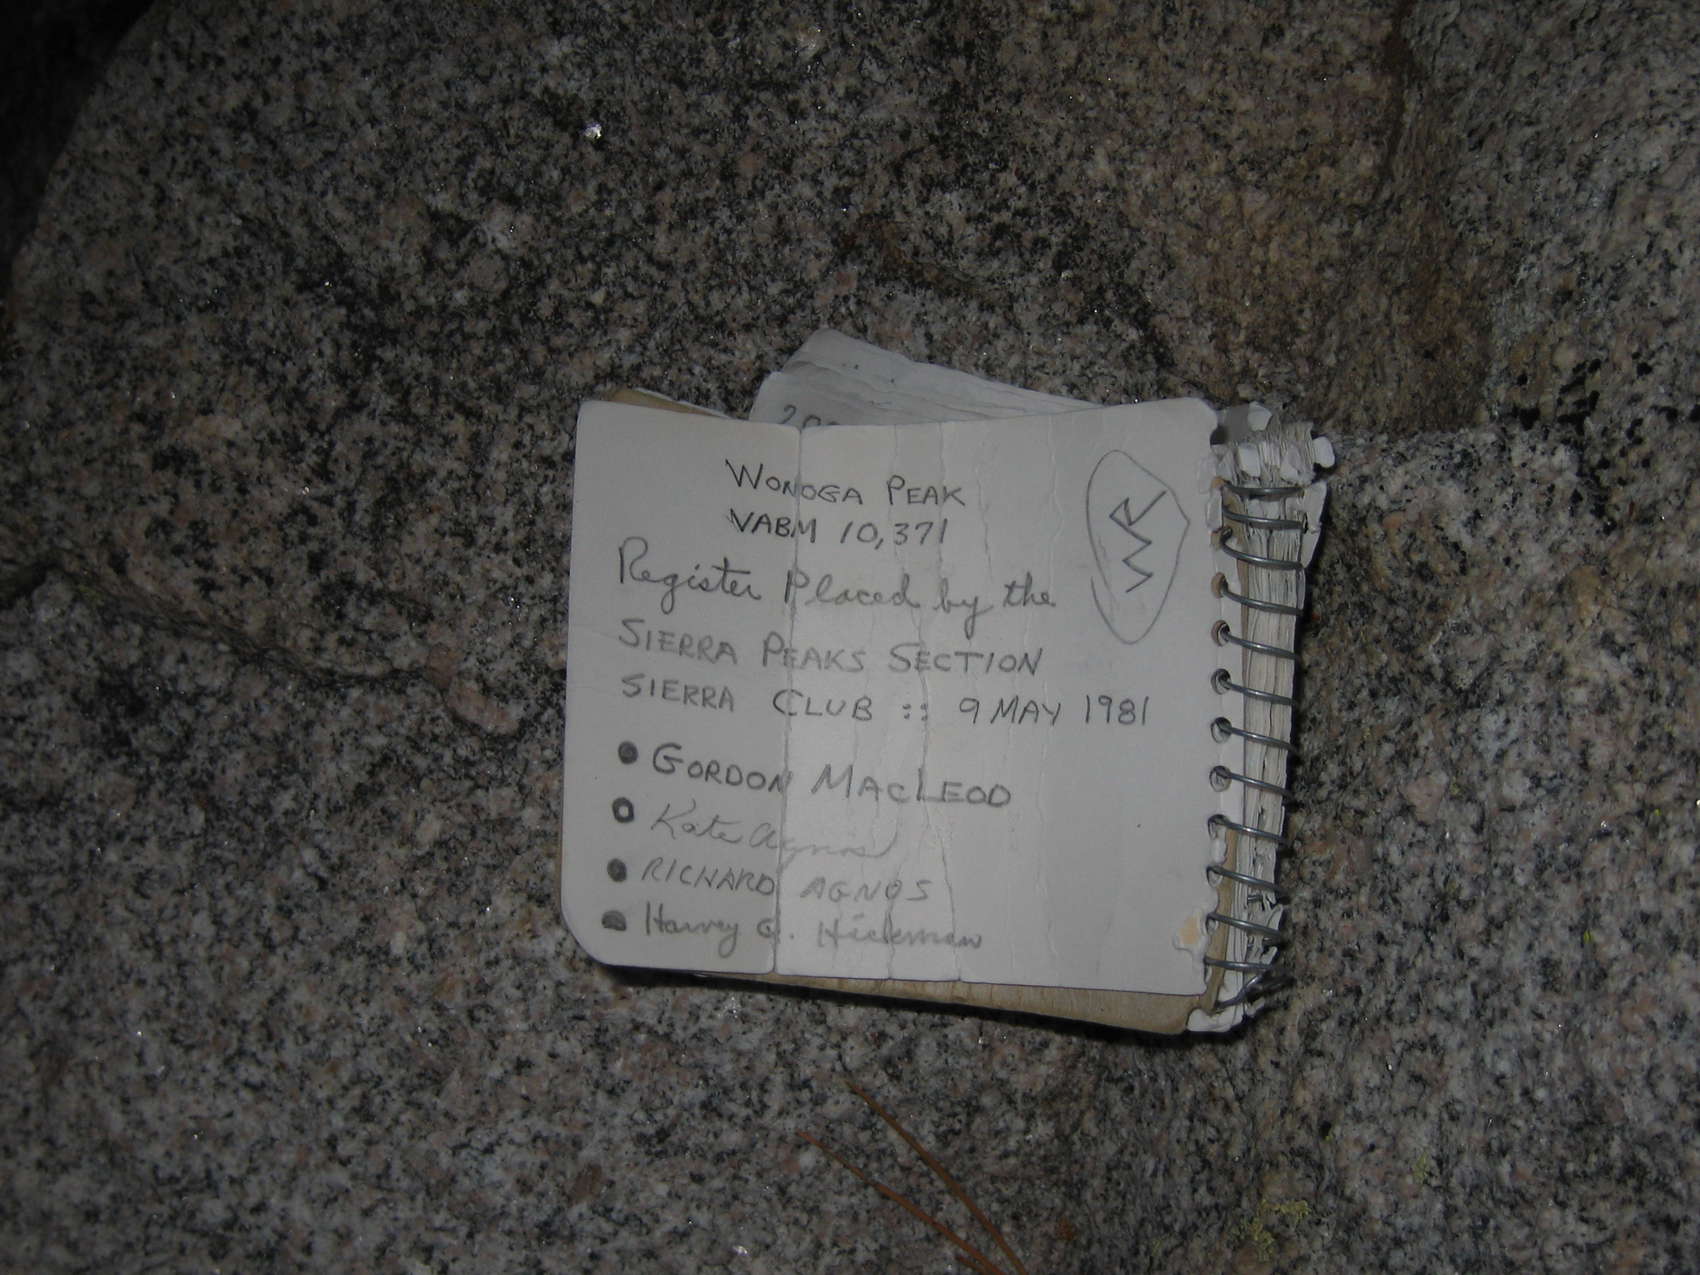 WONOGA PEAK
VABM 10,371
Register Placed by the
SIERRA PEAKS SECTION
SIERRA CLUB :: 9 MAY 1981
GORDON MACLEOD
Kate Agnos
RICHARD AGNOS
Harvey G. Hickman